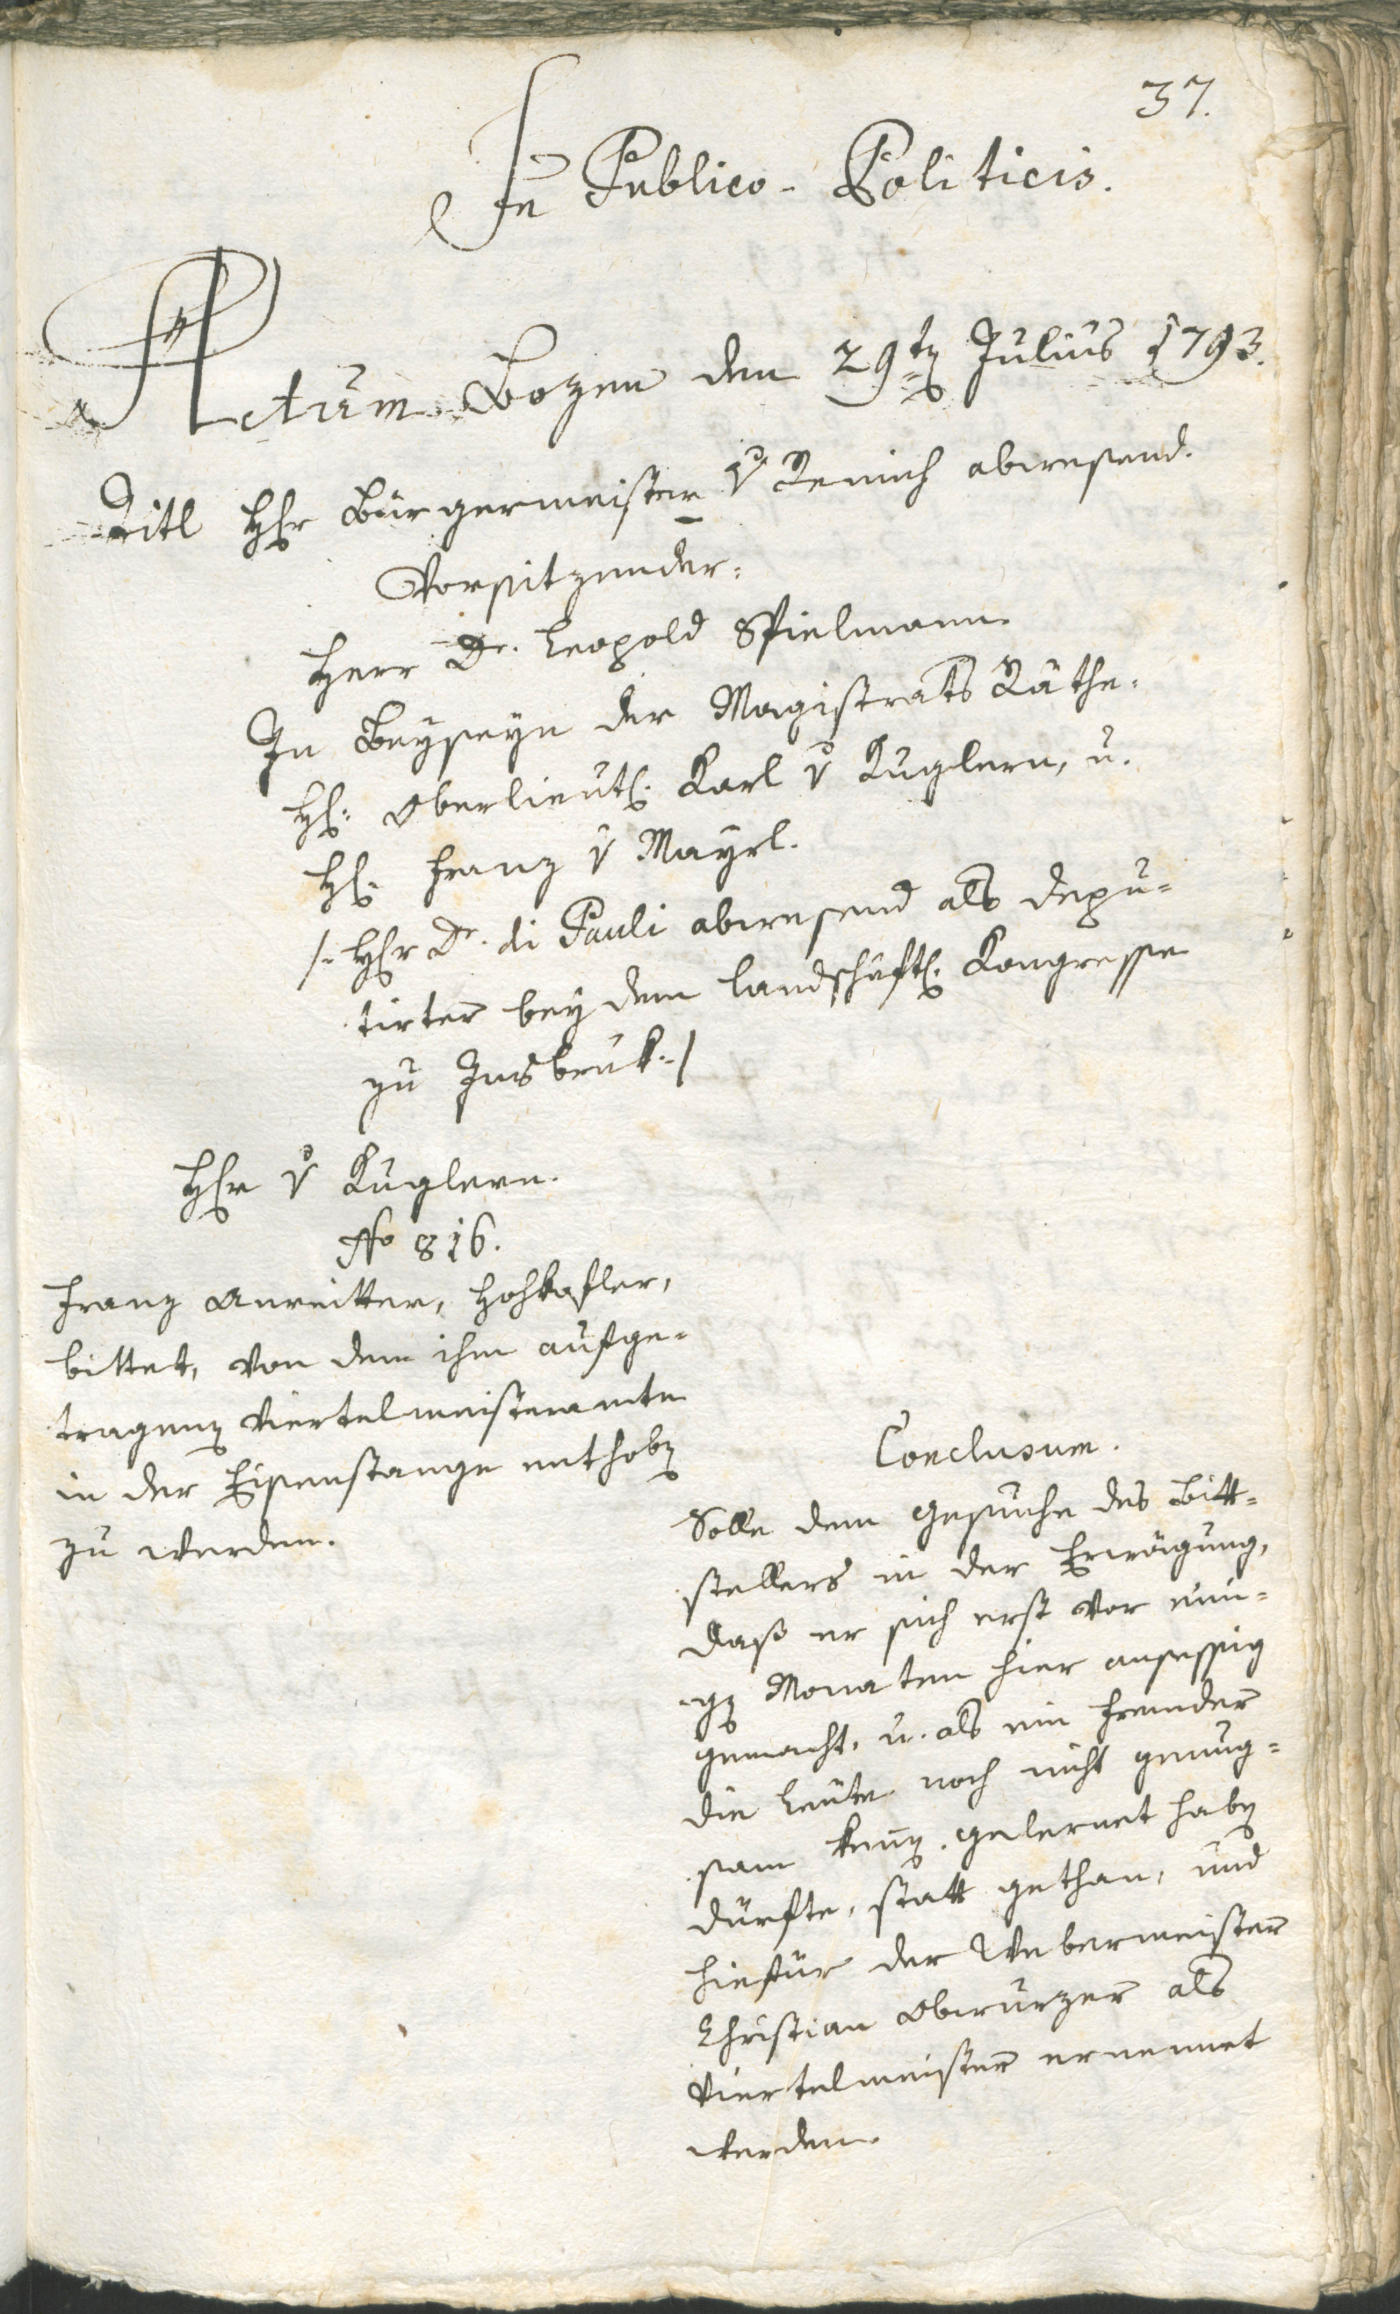 37.
In Publico-Politicis.
Actum Bozen den 29ten Julius 1793.
Titl Herr Bürgermeister v Remich abwesend.
Vorsitzender:
Herr Dr. Leopold Spielmann.
In Beyseyn der Magistrats Räthe.
H: Oberlieut: Karl v Kuglern, u.
H: Franz v Mayrl.
/: Herr Dr. di Pauli abwesend als depu=
tirter bey dem landschäftl: Kongresse
zu Insbruk :/
Herr v Kuglern.
No 816.
Franz Anreitter,
bittet, von dem ihm aufge=
tragenen Viertelmeisteramte
in der Eisenstange enthoben
zu werden.
Conclusum.
Solle dem Gesuche des Bitt=
stellers in der Erwägung,
daß er sich erst vor eini=
gen Monaten hier ansessig
gemacht, u. als ein Fremder
die Leute noch nicht genug=
sam kennen gelernet haben
dürfte, statt gethan, und
hiefür der Webermeister
Christian Obwurzer als
Viertelmeister ernennet
werden.